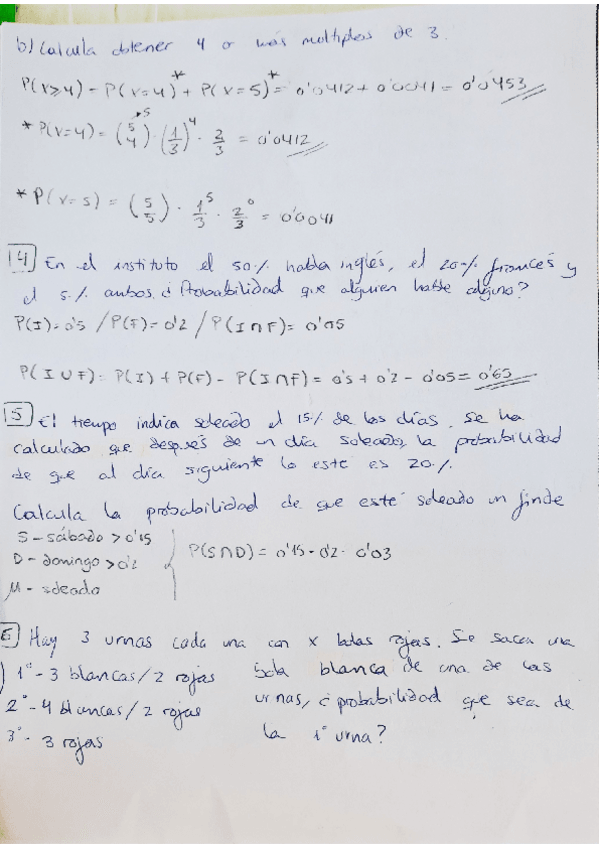 b) Calcula obtener 4 o más multiplos de 3.
P(V≥4) = P(V=4)* + P(V=5)* = 0'0412 + 0'0041 = 0'0453
5
* P(V=4) = (5 4) · (1/3)^4 · 2/3 = 0'0412
* P(V=5) = (5 5) · 1/3^5 · 2/3^0 = 0'0041
4 En el instituto el 50% habla inglés, el 20% francés y
el 5% ambos ¿Probabilidad que alguien hable alguno?
P(I)=0'5 / P(F)=0'2 / P(I∩F)= 0'05
P(I∪F)= P(I) + P(F) - P(I∩F) = 0'5 + 0'2 - 0'05 = 0'65
5 El tiempo indica soleado el 15% de los días. Se ha
calculado que después de un día soleado, la probabilidad
de que al día siguiente lo este es 20%.
Calcula la probabilidad de que esté soleado un finde
S - sábado > 0'15
D - domingo > 0'2
M - soleado
P(S∩D) = 0'15 · 0'2 · 0'03
6 Hay 3 urnas cada una con x bolas rojas. Se sacea una
) 1° - 3 blancas / 2 rojas bola blanca de una de las
2° - 4 blancas / 2 rojas urnas, ¿probabilidad que sea de
3° - 3 rojas la 1° urna?